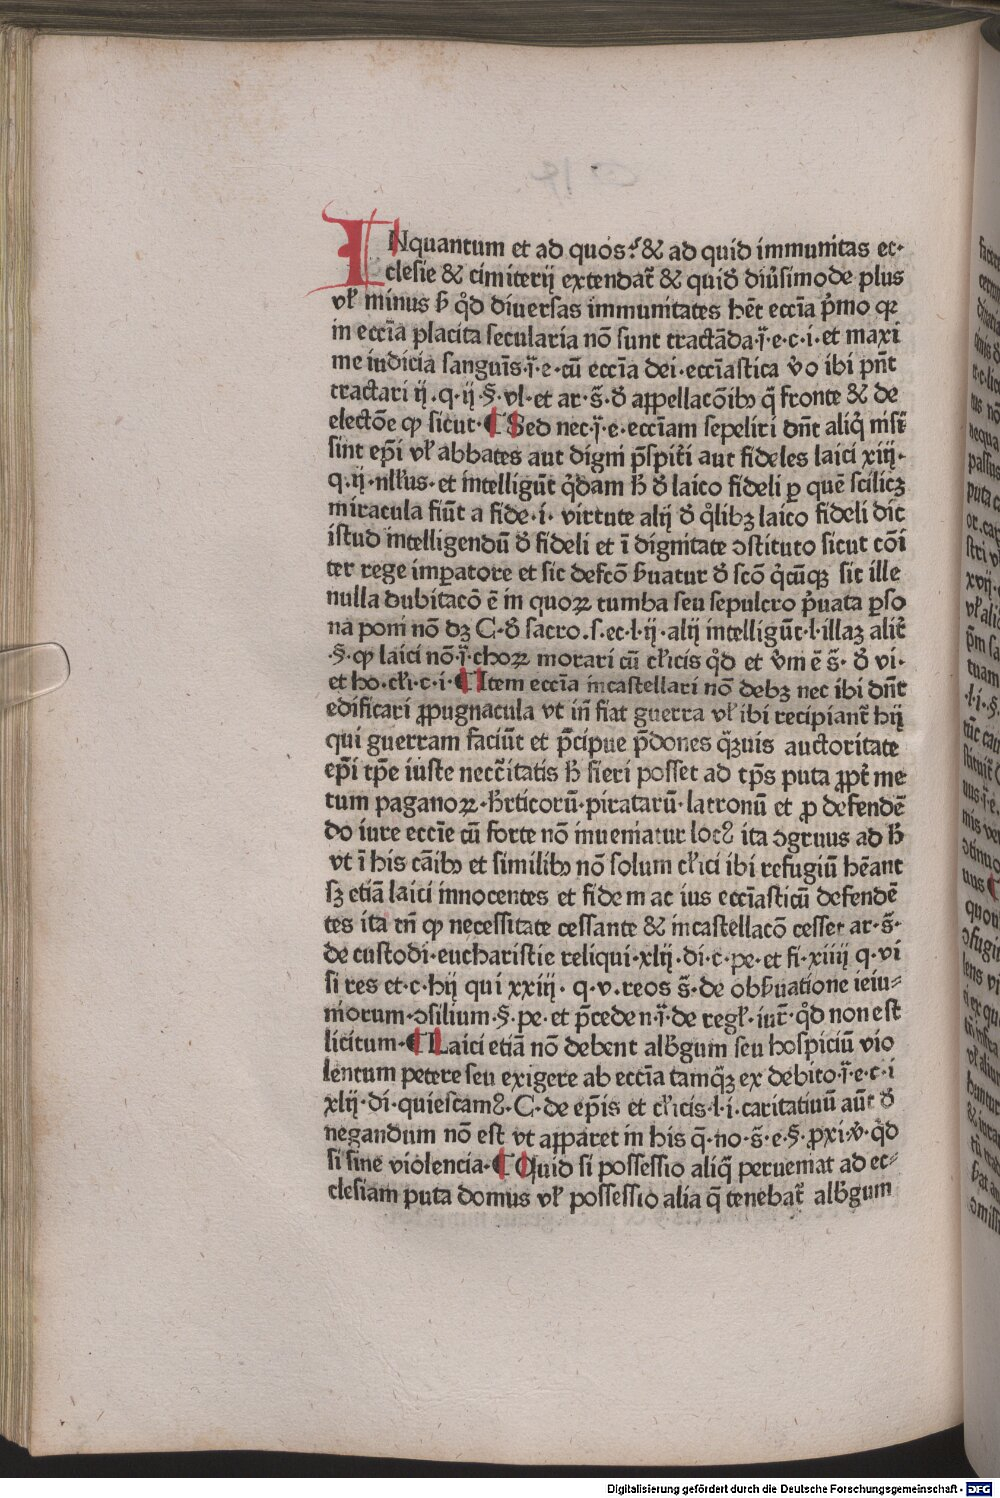 INquantum et ad quos? & ad quid immunitas ec·
clesie & cimiterij extendat̃ & quid̄ diũsimode plus
vl̵ minus ƀ qd̄ diuersas immunitates hēt ecc̄ia p̄mo qꝛ
in ecc̄ia placita secularia nō sunt tractāda·j̄·e·c·i·et maxi
me iudicia sanguīs·j̄·e·cū ecc̄ia dei·ecc̄iastica v̄o ibi pn̄t
tractari ij·q·ij·§·vl·et ar·s̄·d̄ appellacōibꝫ q̄ fronte & de
electōe ꝙ sicut·¶Sed nec·j̄·e·ecc̄iam sepeliri dn̄t aliq̄ nisi
sint ep̄i vl̵ abbates aut digni p̄sp̄iti aut fideles laici xiij·
q·ij·nll̵us·et intelligūt q̄dam ħ d̄ laico fideli ꝑ quē scilicꝫ
miracula fiūt a fide·i·virtute alij d̄ q̄libꝫ laico fideli dic̄
istud intelligendū d̄ fideli et ī dignitate ɔstituto sicut cōi
ter rege imꝑatore et sic defcō ƀuatur d̄ scō q̄cūqꝫ sic ille
nulla dubitacō ē in quoꝝ tumba seu sepulcro p̄uata ꝑso
na poni nō dꝫ C·d̄ sacro·s·ec·l·ij·alij intelligūt·l·illaꝫ alit̄
·§·ꝙ laici nō·j̄·choꝝ morari cū cl̵icis qd̄ et v̄m ē s̄·d̄ vi·
et ho·cl̵i·c·i·¶Item ecc̄ia incastellari nō debꝫ nec ibi dn̄t
edificari ꝓpugnacula vt in̄ fiat guerra vl̵ ibi recipiant̄ hij
qui guerram faciūt et p̄cipue p̄dones q̄ꝫuis auctoritate
ep̄i tp̄e iuste necc̄itatis ħ fieri posset ad tp̄s puta ꝓpt̄ me
tum paganoꝝ·ħrticorū·piratarū·latronū et ꝓ defendē
do iure ecc̄ie cū forte nō inueniatur locꝰ ita ɔgruus ad ħ
vt ī his cāibꝫ et similibꝫ nō solum cl̵ici ibi refugiū hēant
sꝫ etiā laici innocentes et fidem ac ius ecc̄iasticū defendē
tes ita tn̄ ꝙ necessitate cessante & incastellacō cesset ar·s̄·
de custodi·eucharistie reliqui·xlij·di·c·pe·et fi·xiiij q·vi
si res et·c·hij qui xxiij·q·v·reos s̄·de obƀuatione ieiu⸗
niorum·ɔsilium·§·pe·et p̄ceden·j̄·de regl̵·iur̄·qd̄ non est
licitum·¶Laici etiā nō debent alƀgum seu hospiciū vio
lentum petere seu exigere ab ecc̄ia tamq̄ꝫ ex debito·j̄·e·c·i
xlij·di·quiescamꝰ·C·de ep̄is et cl̵icis·l·i·caritatiuū aūt d̄
negandum nō est vt apparet in his q̄·no·s̄·e·§·ꝓxi·v̄·qd̄
si sine violencia·¶Quid si possessio aliq̄ perueniat ad ec⸗
clesiam puta domus vl̵ possessio alia q̄ tenebat̄ alƀgum
Digitalisierung gefördert durch die Deutsche Forschungsgemeinschaft · DFG